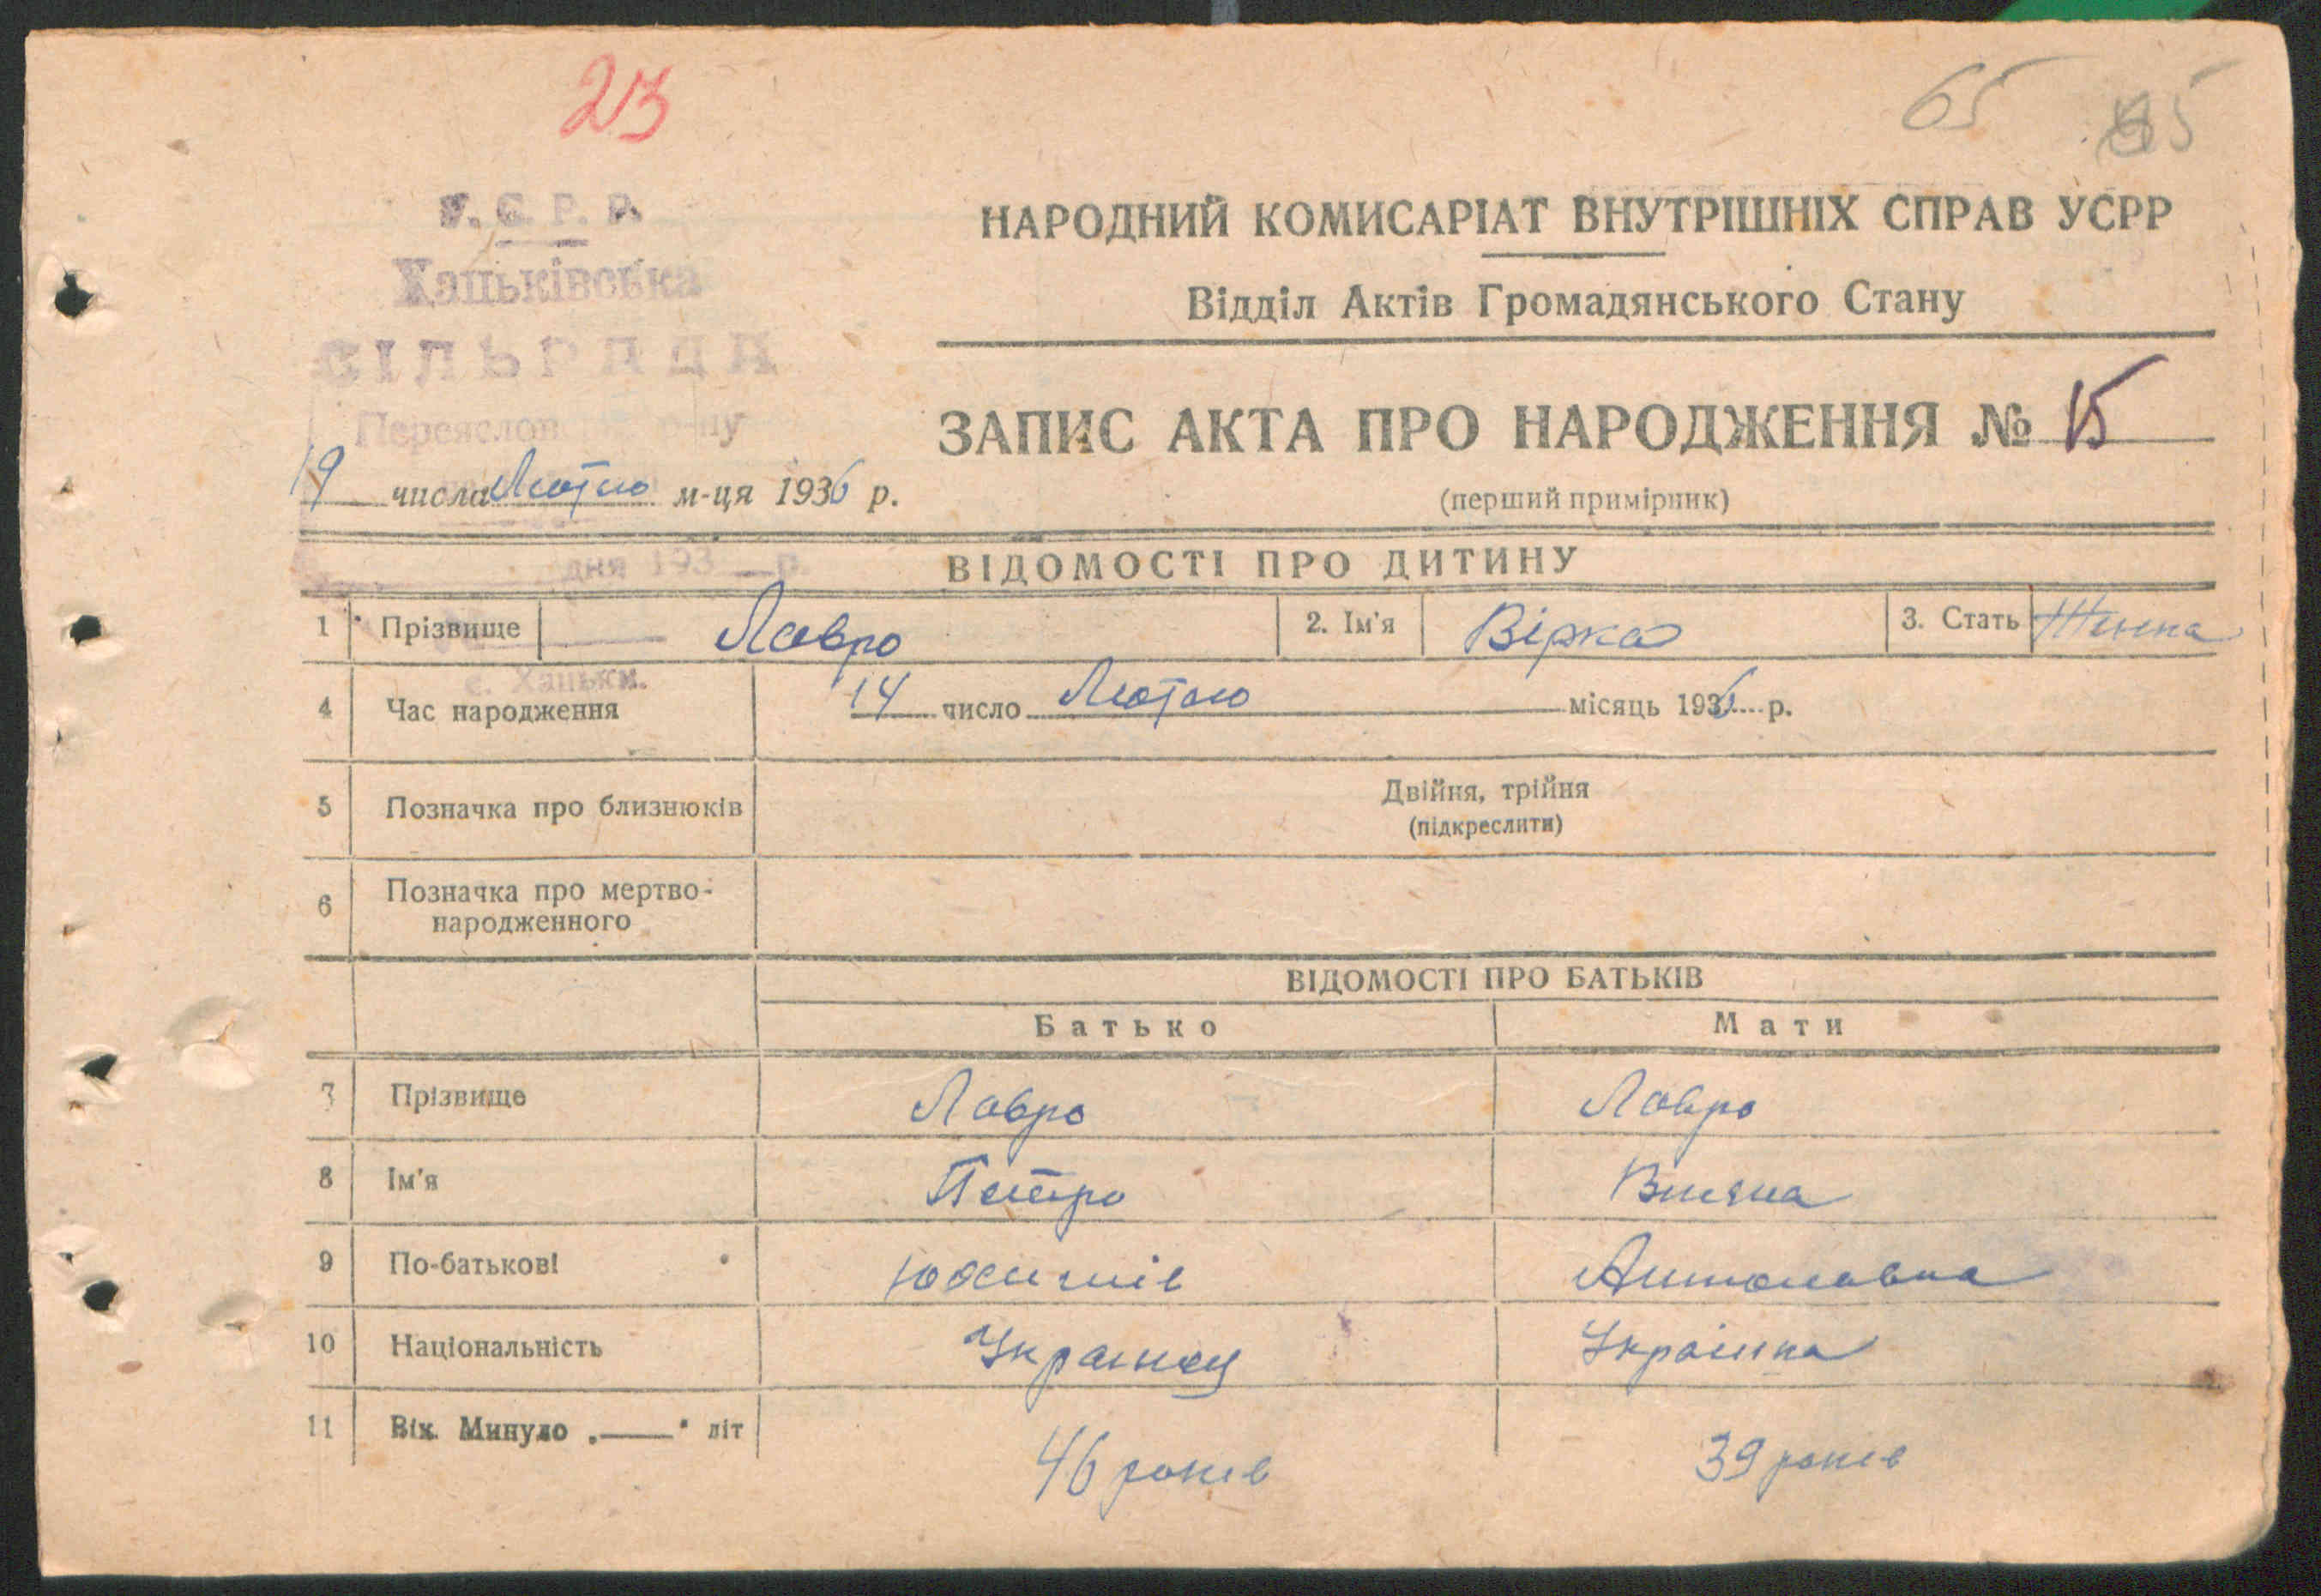 23
65 85
У. С. Р. Р.
Хацьківська
СІЛЬРАДА
Переяслов р-ну
дня 193 р.
с. Хацьки.
НАРОДНИЙ КОМИСАРІАТ ВНУТРІШНІХ СПРАВ УСРР
Відділ Актів Громадянського Стану
ЗАПИС АКТА ПРО НАРОДЖЕННЯ № 15
(перший примірник)
19 числа Лютого м-ця 1936 р.
ВІДОМОСТІ ПРО ДИТИНУ
1 Прізвище Лавро 2. Ім'я Вірка 3. Стать Жінка
4 Час народження 14 число Лютого місяць 1936 р.
5 Позначка про близнюків Двійня, трійня
(підкреслити)
6 Позначка про мертво-
народженного
ВІДОМОСТІ ПРО БАТЬКІВ
Батько Мати
7 Прізвище Лавро Лавро
8 Ім'я Петро
9 По-батькові Юхимів Антонавна
10 Національність Украинец Украінка
11 Вік. Минуло „——" літ 46 років 39 років